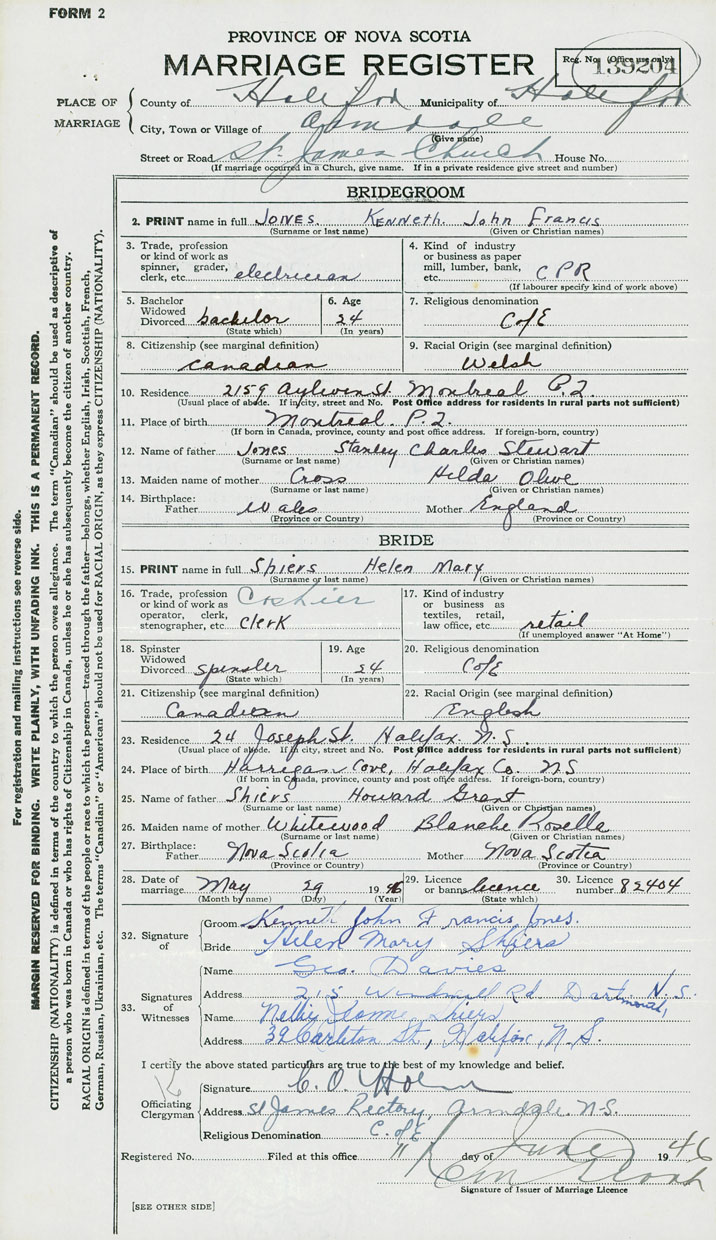 FORM 2
PROVINCE OF NOVA SCOTIA
MARRIAGE REGISTER
Reg. No. (Office use only)
139204
PLACE OF MARRIAGE
County of Halifax Municipality of Halifax
City, Town or Village of Armdale
(Give name)
Street or Road St. James Church House No.
(If marriage occurred in a Church, give name. If in a private residence give street and number)
BRIDEGROOM
2. PRINT name in full JONES. KENNETH. John Francis
(Surname or last name) (Given or Christian names)
3. Trade, profession or kind of work as spinner, grader, clerk, etc. electrician
4. Kind of industry or business as paper mill, lumber, bank, etc. CPR
(If labourer specify kind of work above)
5. Bachelor Widowed Divorced bachelor
(State which)
6. Age 24
(In years)
7. Religious denomination C of E
8. Citizenship (see marginal definition) Canadian
9. Racial Origin (see marginal definition) Welsh
10. Residence 2159 Aylwin St. Montreal P.Q.
(Usual place of abode. If in city, street and No. Post Office address for residents in rural parts not sufficient)
11. Place of birth Montreal. P.Q.
(If born in Canada, province, county and post office address. If foreign-born, country)
12. Name of father Jones Stanley Charles Stewart
(Surname or last name) (Given or Christian names)
13. Maiden name of mother Cross Hilda Olive
(Surname or last name) (Given or Christian names)
14. Birthplace: Father Wales Mother England
(Province or Country) (Province or Country)
BRIDE
15. PRINT name in full Shiers Helen Mary
(Surname or last name) (Given or Christian names)
16. Trade, profession or kind of work as operator, clerk, stenographer, etc. Cashier clerk
17. Kind of industry or business as textiles, retail, law office, etc. retail
(If unemployed answer "At Home")
18. Spinster Widowed Divorced spinster
(State which)
19. Age 24
(In years)
20. Religious denomination C of E
21. Citizenship (see marginal definition) Canadian
22. Racial Origin (see marginal definition) English
23. Residence 24 Joseph St. Halifax. N.S.
(Usual place of abode. If in city, street and No. Post Office address for residents in rural parts not sufficient)
24. Place of birth Harrigan Cove, Halifax Co. NS
(If born in Canada, province, county and post office address. If foreign-born, country)
25. Name of father Shiers Howard Grant
(Surname or last name) (Given or Christian names)
26. Maiden name of mother Whitewood Blanche Rosella
(Surname or last name) (Given or Christian names)
27. Birthplace: Father Nova Scotia Mother Nova Scotia
(Province or Country) (Province or Country)
28. Date of marriage. May 29 1946
(Month by name) (Day) (Year)
29. Licence or banns licence
(State which)
30. Licence number 82404
32. Signature of
Groom Kenneth John Francis Jones.
Bride Helen Mary Shiers
33. Signatures of Witnesses
Name Geo. Davies
Address 215 Windmill Rd Dartmouth, N.S.
Name Shiers
Address 39 Carleton St, Halifax, N.S.
I certify the above stated particulars are true to the best of my knowledge and belief.
Officiating Clergyman
Signature C. O.
Address St James Rectory, Armdale. N.S.
Religious Denomination C. of E
Registered No. Filed at this office 11 day of June 1946
Signature of Issuer of Marriage Licence
[SEE OTHER SIDE]
For registration and mailing instructions see reverse side.
MARGIN RESERVED FOR BINDING. WRITE PLAINLY, WITH UNFADING INK. THIS IS A PERMANENT RECORD.
CITIZENSHIP (NATIONALITY) is defined in terms of the country to which the person owes allegiance. The term "Canadian" should be used as descriptive of
a person who was born in Canada or who has rights of Citizenship in Canada, unless he or she has subsequently become the citizen of another country.
RACIAL ORIGIN is defined in terms of the people or race to which the person—traced through the father—belongs, whether English, Irish, Scottish, French,
German, Russian, Ukrainian, etc. The terms "Canadian" or "American" should not be used for RACIAL ORIGIN, as they express CITIZENSHIP (NATIONALITY).